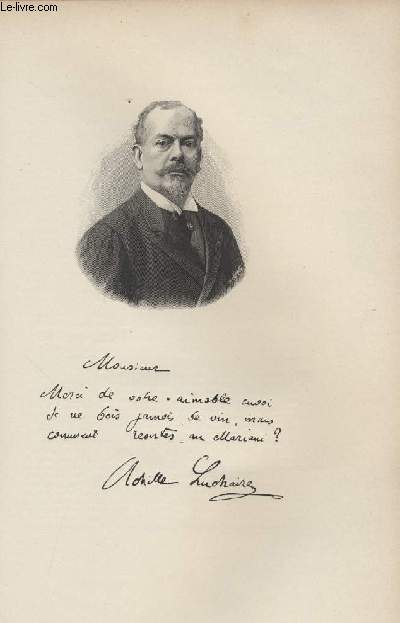 © Le-livre.com
Monsieur
Merci de votre aimable envoi
Je ne bois jamais de vin, mais
comment résister au Mariani ?
Achille Luchaire